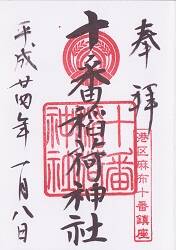 奉拝
港区麻布十番鎮座
十番稲荷神社
十番
稲荷
神社
平成廿四年一月八日